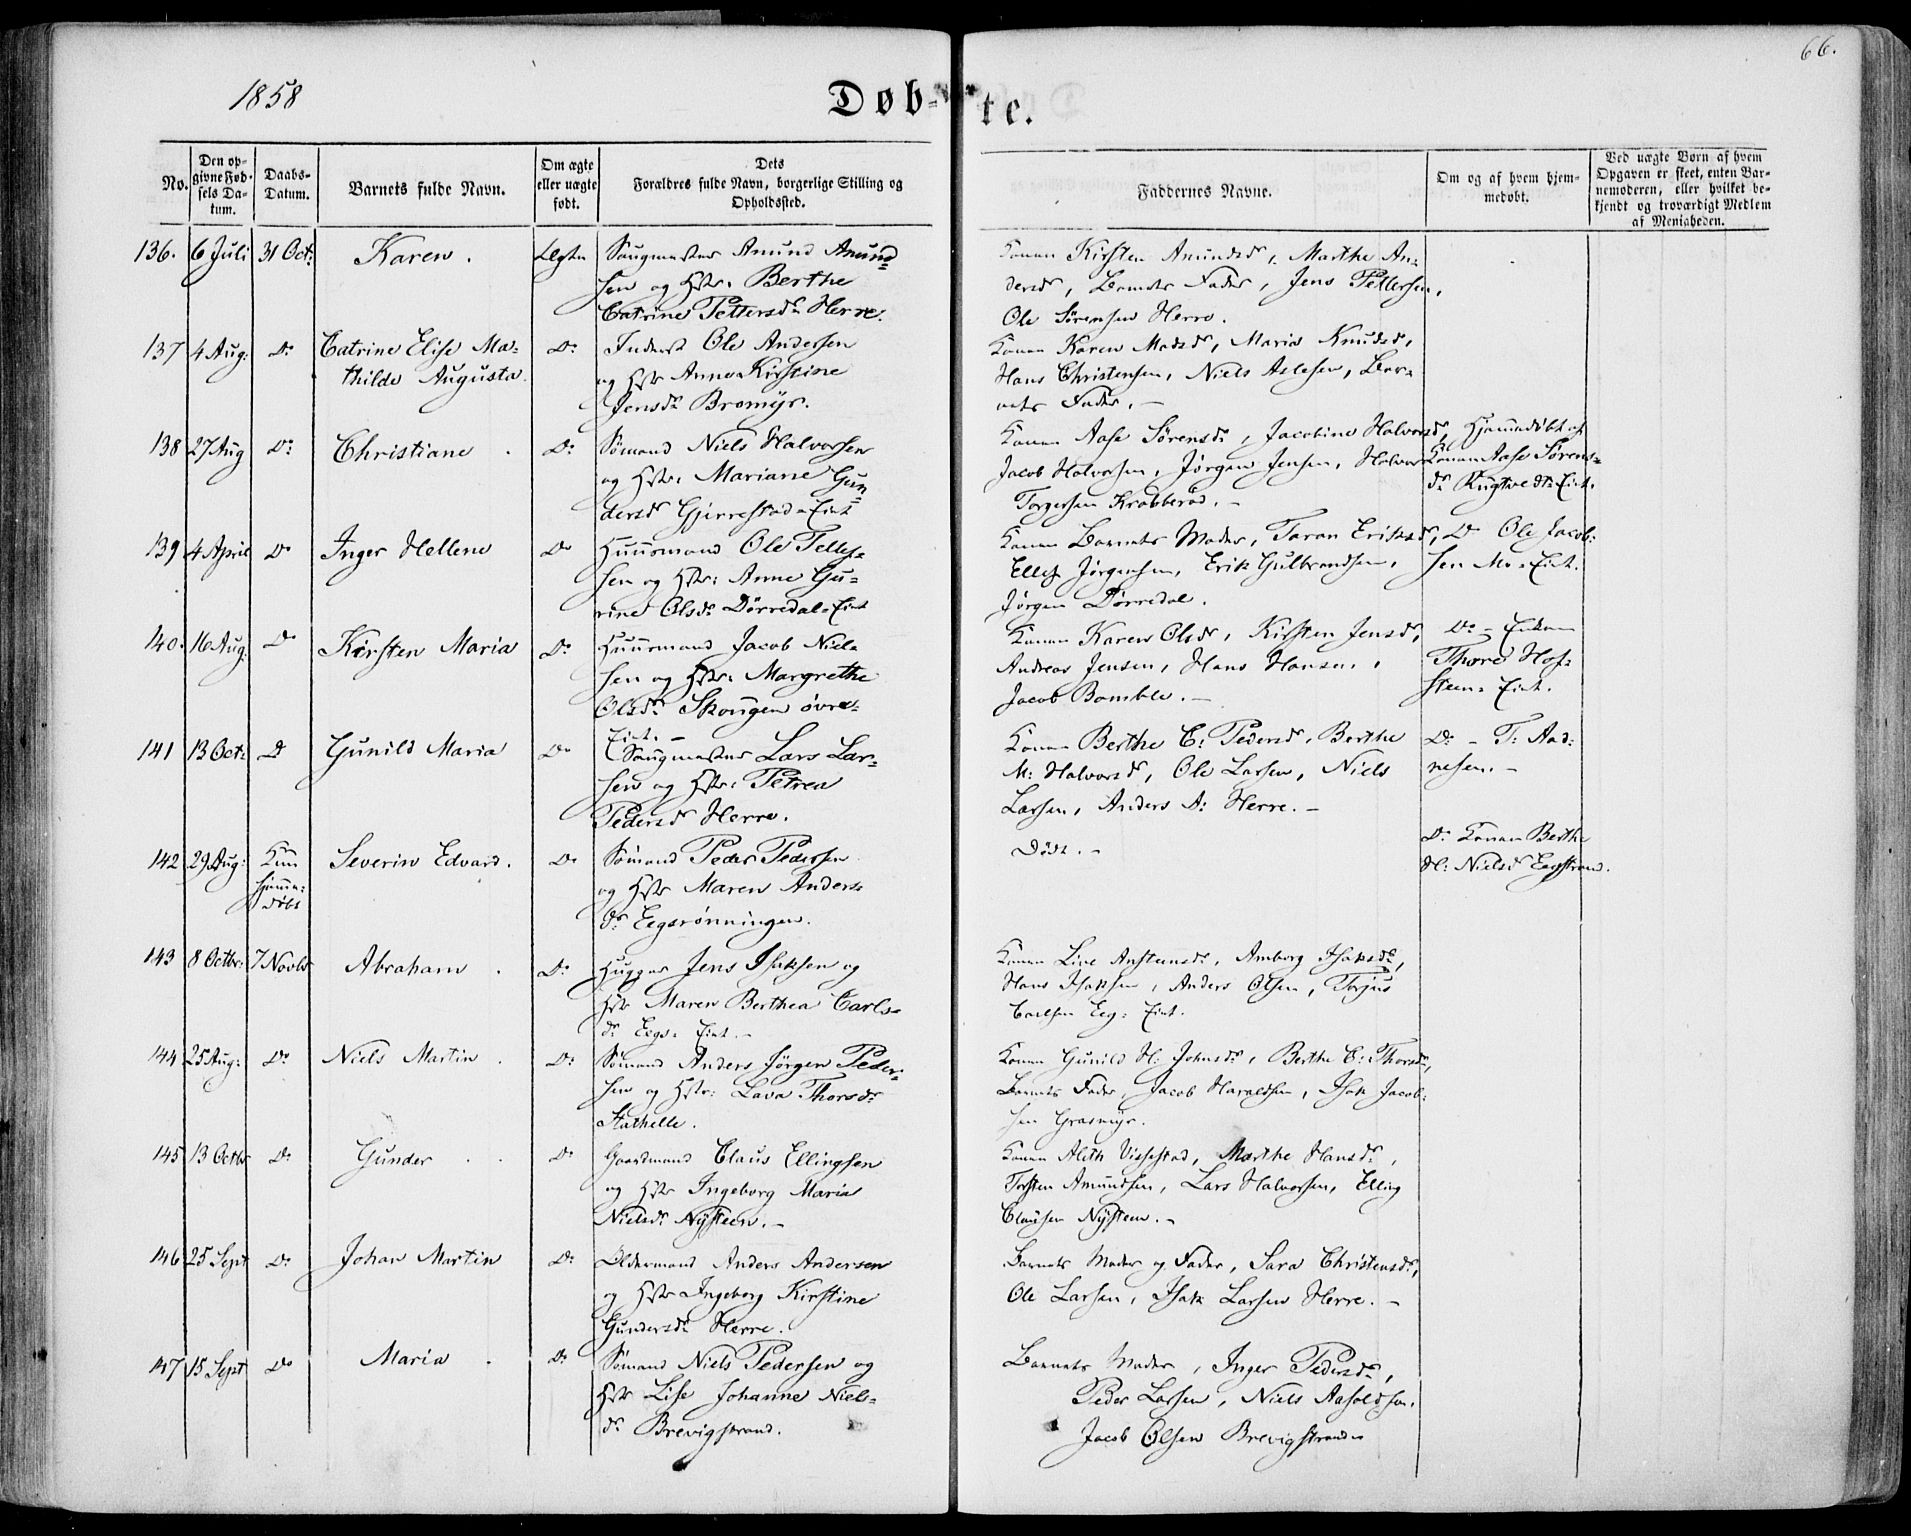 66.
1858
Døb-te.
No.
Den op-
givne Fød-
sels Da-
tum.
Daabs-
Datum.
Barnets fulde Navn.
Om ægte
eller uægte
født.
Dets
Forældres fulde Navn, borgerlige Stilling og
Opholdssted.
Faddernes Navne.
Om og af hvem hjem-
medøbt.
Ved uægte Børn af hvem
Opgaven er skeet, enten Bar-
nemoderen, eller hvilket be-
kjendt og troværdigt Medlem
af Menigheden.
136. 6 Juli 31 Oct: Karen. Ægte Saugmester Amund Amund-
sen og Hstr: Berthe
Catrine Pettersdr Herre.
Konen Kirsten Amundsdr, Marthe An-
dersdr, Barnets Fader, Jens Pettersen,
Ole Sørensen Herre.
137 4 Aug: Do Catrine Elise Ma-
thilde Augusta.
Do Inderst Ole Andersen
og Hstr Anne Kirstine
Jensdr Bromyr.
Konen Karen Madsdr, Maria Knudsdr,
Hans Christensen, Niels Aslesen, Bar-
nets Fader. -
138 27 Aug Do Christiane. Do Sømand Niels Halvorsen
og Hstr: Mariane Gun-
dersdr Gjerrestad-Eiet
Konen Aase Sørensdr, Jacobine Halvorsdr,
Jacob Halvorsen, Jørgen Jensen, Halvor
Torgersen Krabberød. -
Hjemmedøbt af
Konen Aase Sørens-
dr Rugtvedt-Eiet.
139 4 April Do Inger Hellene Do Huusmand Ole Tellef-
sen og Hstr: Anne Gu-
rine Olsdr Dørredal-Eiet
Konen Barnets Moder, Taran Eriksdr,
Ellef Jørgensen, Erik Gulbrandsen,
Jørgen Dørredal.
Do Ole Jacob-
sen Mo-Eiet.
140. 16 Aug: Do Kirsten Maria Do Huusmand Jacob Niel-
sen og Hstr: Margrethe
Olsdr Skougen øvre-
Eiet. -
Konen Karen Olsdr, Kirsten Jensdr,
Andreas Jensen, Hans Hansen,
Jacob Bamble. -
Do - Enken
Thore Hof-
steen-Eiet.
141 13 Oct: Do Gunild Maria Do Saugmester Lars Lar-
sen og Hstr: Petrea
Pedersdr Herre.
Konen Berthe C: Pedersdr, Berthe
M: Halvorsdr, Ole Larsen, Niels
Larsen, Anders A: Herre. -
Do - T: Aad-
nesen. -
142 29 Aug: Kun
hjemme-
døbt
Severin Edvard. Do Sømand Peder Pedersen
og Hstr Maren Anders-
dr Eegsrønningen.
Død. -
Do Konen Berthe
H: Nielsdr Eegstrand.
143 8 Octbr: 7 Novbr Abraham. Do Hugger Jens Isaksen og
Hstr Maren Berthea Carls-
dr Eegs-Eiet. -
Konen Live Anstensdr, Amborg Isaksdr,
Hans Isaksen, Anders Olsen, Torjus
Carlsen Eeg-Eiet.
144 25 Aug: Do Niels Martin. Do Sømand Anders Jørgen Peder-
sen og Hstr: Lava Thorsdr
Stathelle.
Konen Gunild H: Johnsdr, Berthe C: Thorsdr,
Barnets Fader, Jacob Haraldsen, Isak Jacob-
sen Grasmyr.
145 13 Octbr Do Gunder. Do Gaardmand Claus Ellingsen
og Hstr Ingeborg Maria
Nielsdr Nysteen. -
Konen Aleth Vissestad, Marthe Hansdr,
Torsten Amundsen, Lars Halvorsen, Elling
Clausen Nysteen. -
146 25 Sept Do Johan Martin Do Oldermand Anders Andersen
og Hstr Ingeborg Kirstine
Gundersdr Herre.
Barnets Moder og Fader, Sara Christensdr,
Ole Larsen, Isak Larsen Herre. -
147 15 Sept Do Maria. Do Sømand Niels Pedersen og
Hstr Lise Johanne Niels-
dr Brevigstrand.
Barnets Moder, Inger Pedersdr,
Peder Larsen, Niels Aasoldsen,
Jacob Olsen Brevigstrand